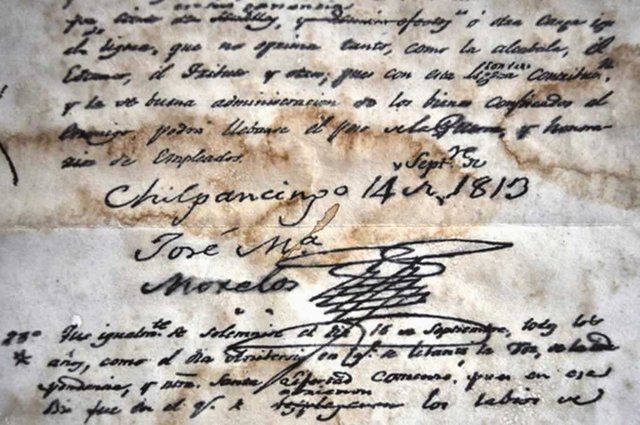 ó otra carga igu
al ligera, que no oprima tanto, como la alcabala, el
Estanco, el Tributo y otros; pues con esta ligera contribucn.
y la buena administracion de los bienes confiscados al
Enemigo podra llebarse el peso de la Guerra, y honora-
rios de Empleados.
Chilpancingo 14 de Septre. de 1813
José Ma.
Morelos
23o Que igualmte. se solemnise el dia 16 de Septiembre, todos los
años, como el dia Aniversario en q. se lebantó la Voz, de la Ynde
pendencia, y ntra. Santa Libertad Comenzó, pues en ese
Dia fue en el q. se los labios de